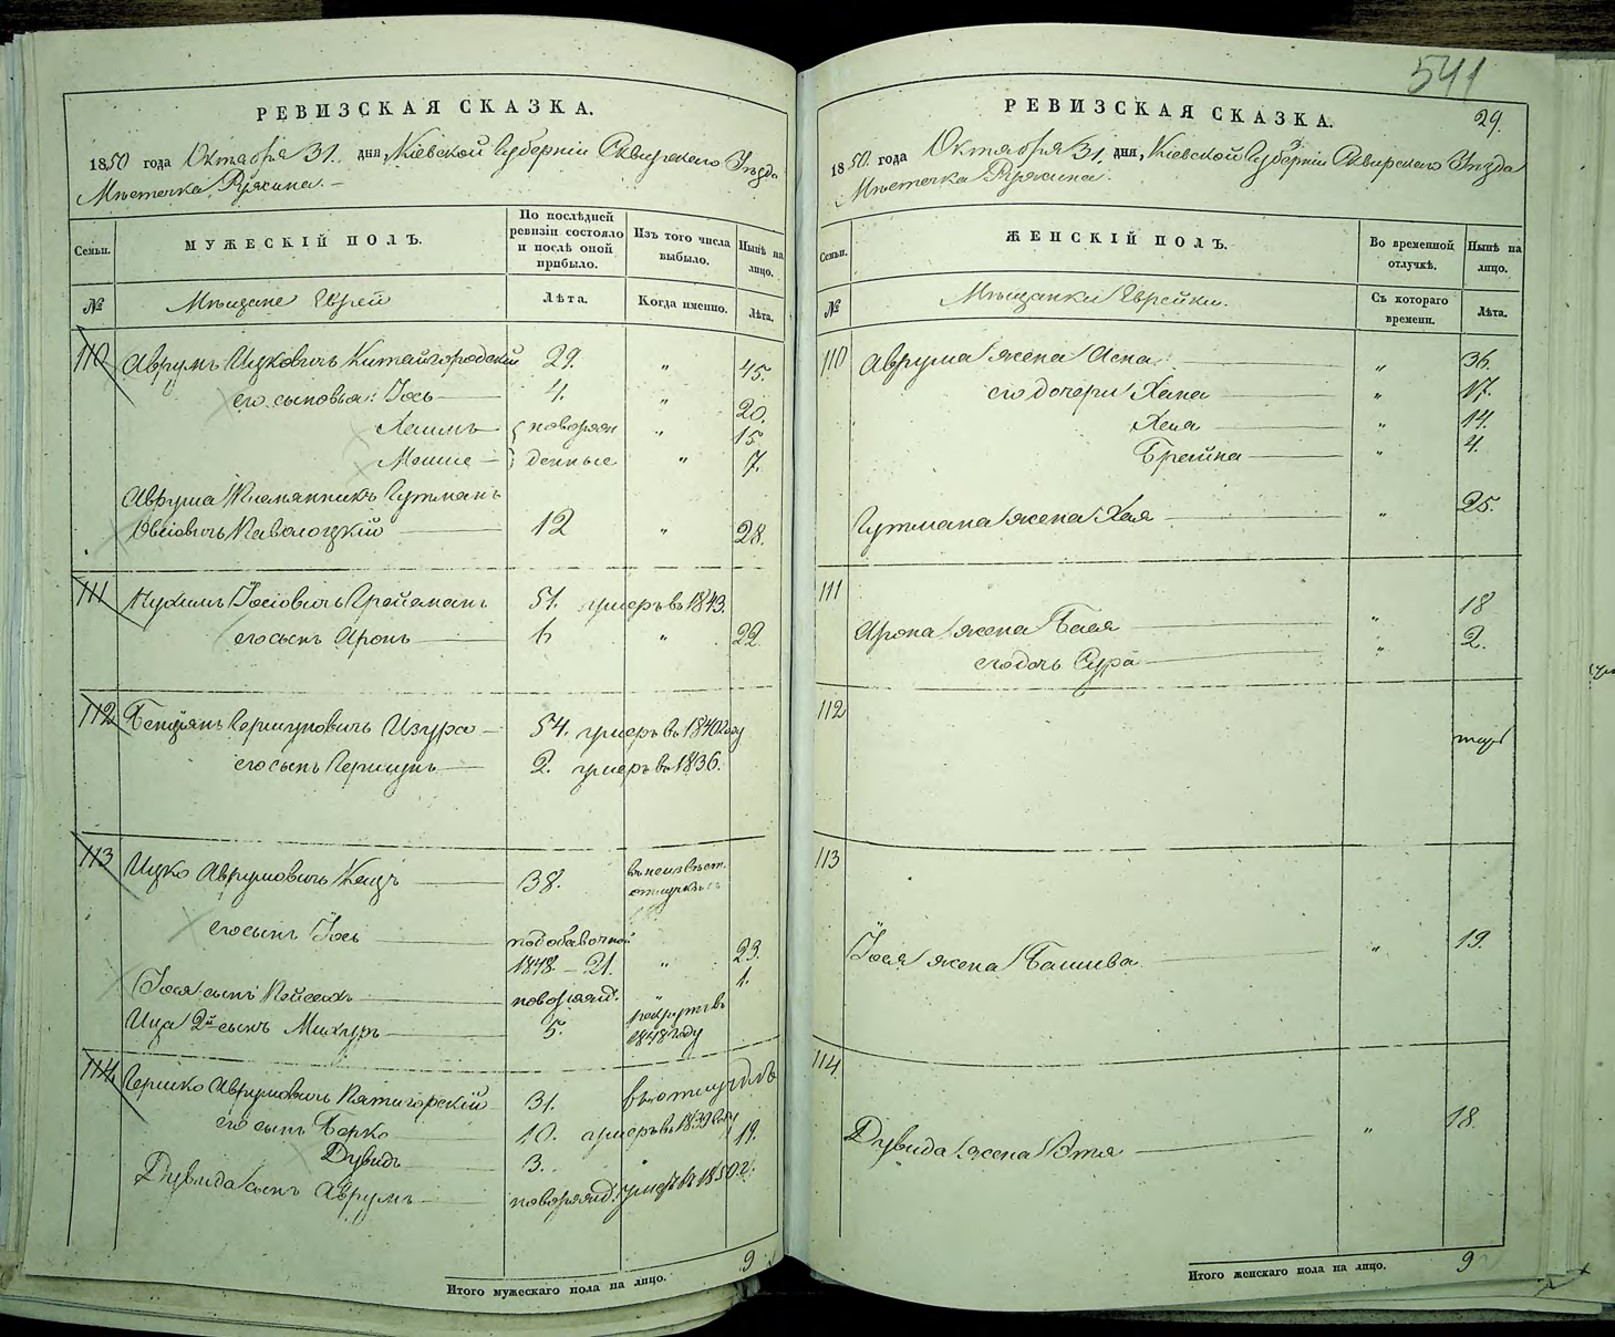 РЕВИЗСКАЯ СКАЗКА.
1850 года Октября 31. дня, Кіевской Губерніи Сквирскаго Уѣзда
Мѣстечка Ружина.
Семьи.
МУЖЕСКІЙ ПОЛЪ.
По послѣдней ревизіи состояло и послѣ оной прибыло.
Изъ того числа выбыло.
Нынѣ на лицо.
№
Мѣщане Евреи
Лѣта.
Когда именно.
Лѣта.
110 Аврумъ Ицковичъ Китайгородскій 29. " 45.
его сыновья: Іось 4. " 20.
Хаимъ новорож " 15.
Мошие денные " 7.
Аврума Племянникъ Гутманъ
Овсіовичъ Паволоцкій 12 " 28.
111 Нухимъ Іосіовичъ 51. умеръ въ 1843.
его сынъ Аронъ 6 " 22.
112 Бенціянъ Гершковичъ Изура 54. умеръ въ 1840 году
его сынъ Гершунъ 2. умеръ въ 1836.
113 Ицко Аврумовичъ Кацъ 38. въ неизвѣст.
отлучкѣ
его сынъ Іось подобавочной
1848 - 21. " 23.
Іося сынъ Пейсахъ новорожд. " 1.
Ица 2й сынъ 5. рекрутъ въ
1848 году
114 Гершко Аврумовичъ Пятигорскій 31. въ отлучкѣ
его сынъ Берко 10. умеръ въ 1839 году
Дувидъ 3. 19.
Дувида сынъ Аврумъ новорожд. умеръ въ 1850 г.
Итого мужескаго пола на лицо. 9
541
29.
РЕВИЗСКАЯ СКАЗКА.
1850. года Октября 31. дня, Кіевской Губерніи Сквирскаго Уѣзда
Мѣстечка Ружина.
Семьи.
ЖЕНСКІЙ ПОЛЪ.
Во временной отлучкѣ.
Нынѣ на лицо.
№
Мѣщанки Еврейки.
Съ котораго времени.
Лѣта.
110 Аврума жена Асна " 36.
его дочери Хана " 17.
Хена " 14.
Брейна " 4.
Гутмана жена Хая " 25.
111
Арона жена Бася " 18
его дочь Сура " 2.
112
113
Іося жена Башива " 19.
114
Дувида жена Этя " 18.
Итого женскаго пола на лицо. 9